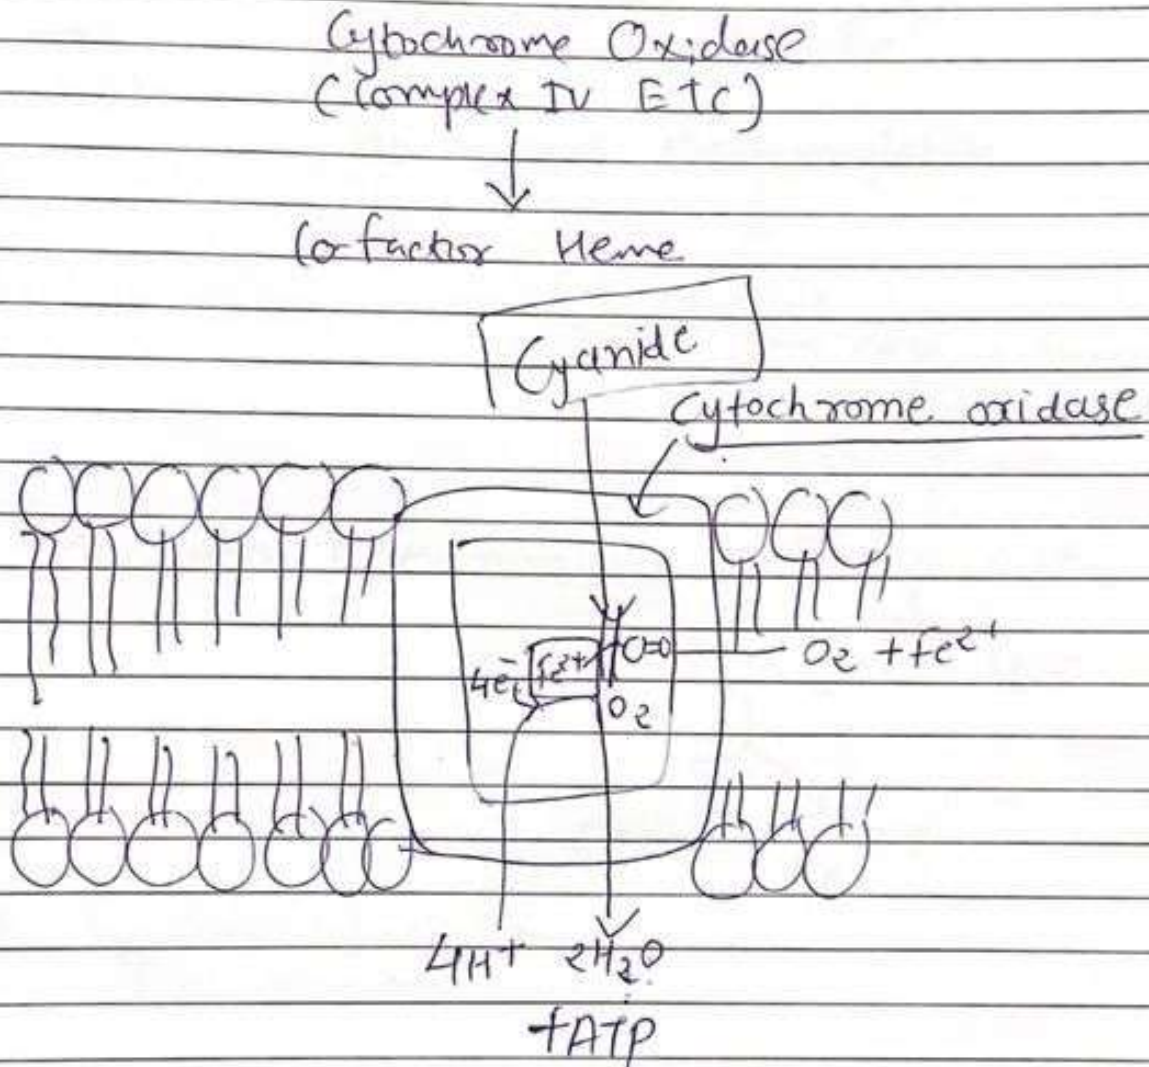 Cytochrome Oxidase
(Complex IV ETC)
Co-factor Heme
Cyanide
Cytochrome oxidase
4e⁻ Fe²⁺ C=O O₂ + Fe²⁺
O₂
4H⁺ 2H₂O
+ATP